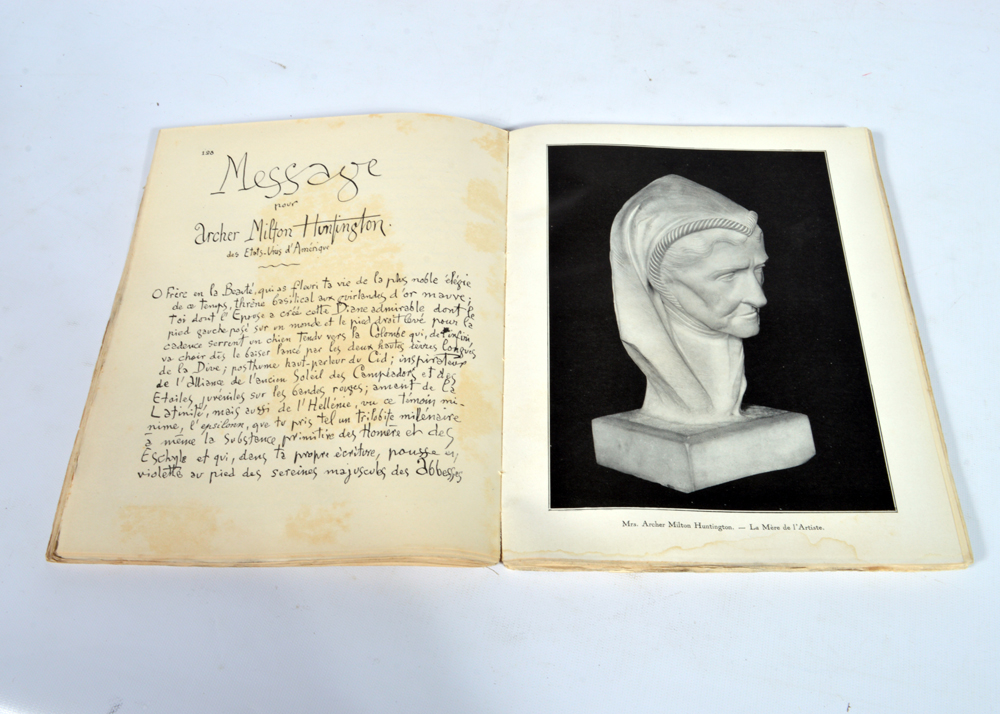 Message
pour
Archer Milton Huntington.
des Etats-Unis d'Amérique
O Frère en la Beauté, qui as fleuri ta vie de la plus noble élégie
de ce temps, thrène basilical aux guirlandes d'or mauve;
Toi dont l'Epouse a créé cette Diane admirable dont le
pied gauche posé sur un monde et le pied droit levé pour la
cadence serrent un chien tendu vers la Colombe qui, de l'infini
va choir dès le baiser lancé par les deux hautes lèvres longues
de la Dive; posthume haut-parleur du Cid; inspirateur
de l'Alliance de l'ancien Soleil des Campéadors et des
Etoiles juvéniles sur les bandes rouges; amant de la
Latinité, mais aussi de l'Hellénie, vu ce témoin mi-
nime, l'epsilonn, que tu pris tel un trilobite millénaire
à même la Substance primitive des Homère et des
Eschyle et qui, dans ta propre écriture, pousse en
violette au pied des sereines majuscules des Abbesses
Mrs. Archer Milton Huntington. — La Mère de l'Artiste.